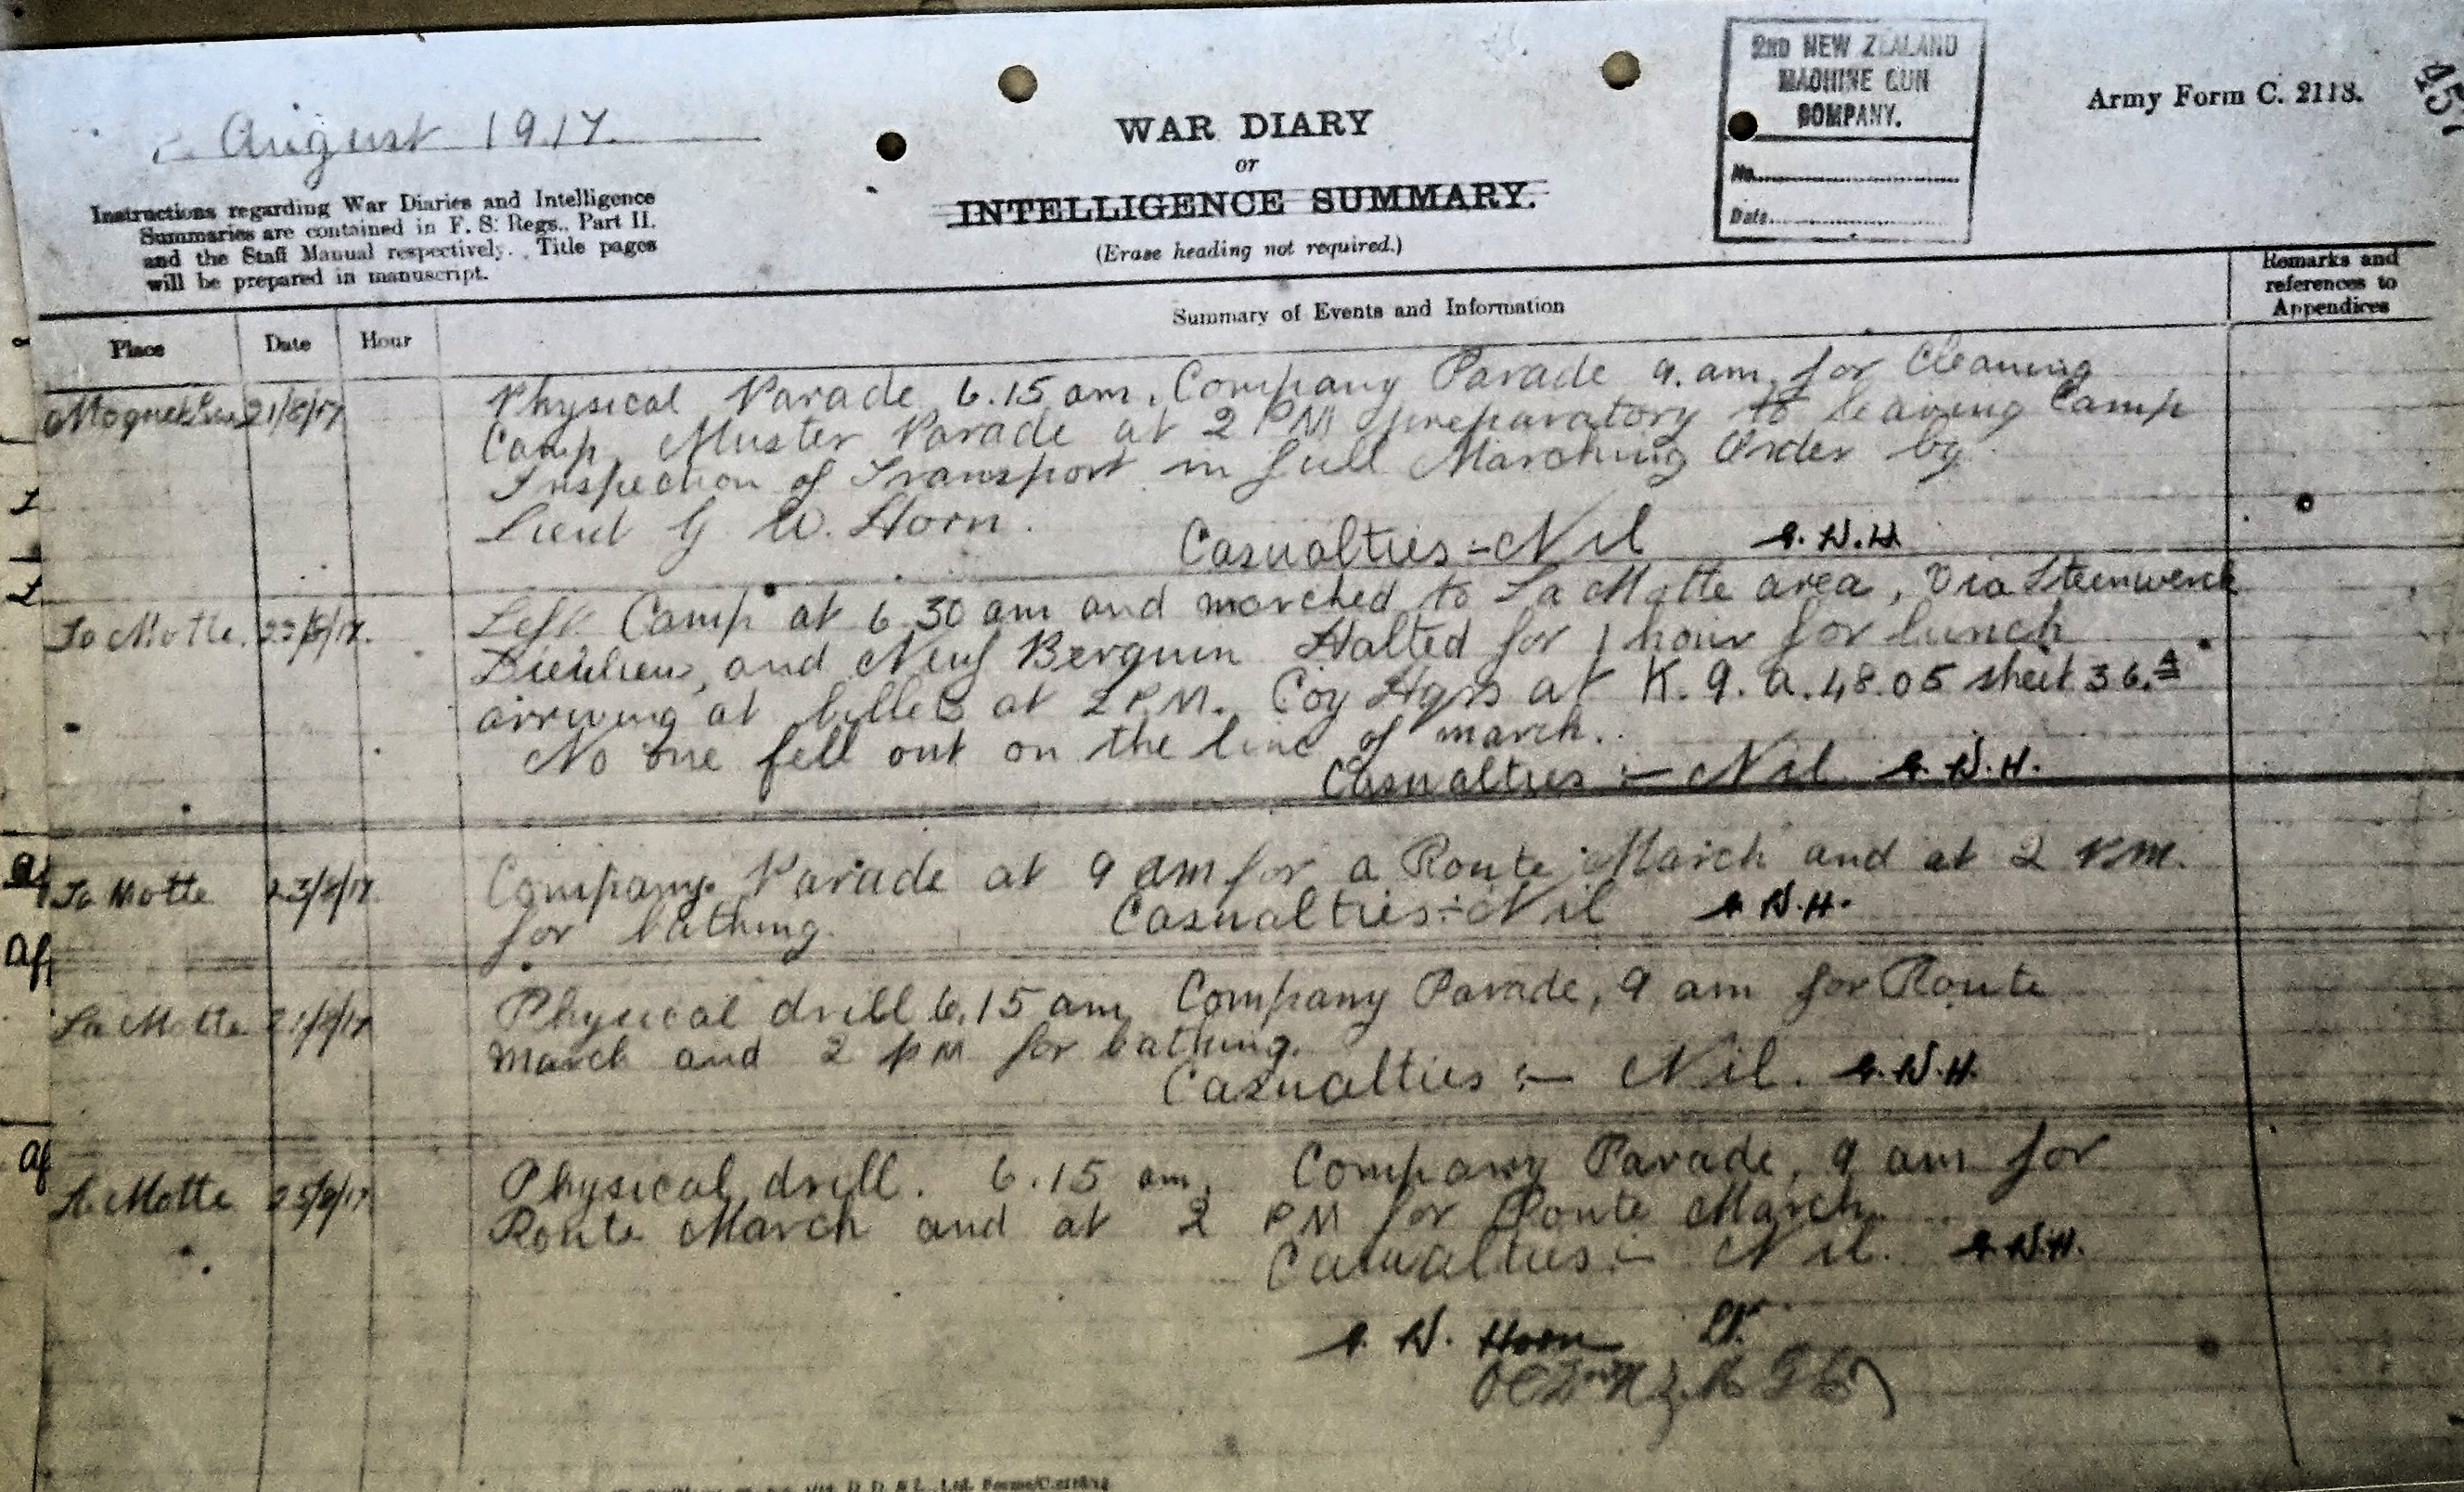 August 1917.
Instructions regarding War Diaries and Intelligence
Summaries are contained in F. S. Regs., Part II.
and the Staff Manual respectively. Title pages
will be prepared in manuscript.
WAR DIARY
or
INTELLIGENCE SUMMARY.
(Erase heading not required.)
2ND NEW ZEALAND
MACHINE GUN
COMPANY.
No.
Date
Army Form C. 2118.
Place
Date
Hour
Summary of Events and Information
Remarks and
references to
Appendices
21/8/17
Physical Parade 6.15 am. Company Parade 9. am. for Cleaning
Camp. Muster Parade at 2 PM preparatory to leaving Camp
Inspection of Transport in full Marching Order by
Lieut G W. Horn.
Casualties :- Nil
La Motte. 22/8/17.
Left Camp at 6 30 am and marched to La Motte area, Via Steenwerck
and Neuf Berquin Halted for 1 hour for lunch
arriving at billets at 2 P.M. Coy Hqrs at K. 9. a. 48.05 sheet 36.A
No one fell out on the line of march.
Casualties :- Nil
La Motte 23/8/17.
Company Parade at 9 am for a Route March and at 2 P.M.
for bathing.
Casualties :- Nil
La Motte
Physical drill 6.15 am Company Parade, 9 am for Route
March and 2 PM for bathing.
Casualties :- Nil.
La Motte 25/8/17
Physical drill. 6.15 am. Company Parade, 9 am for
Route March and at 2 PM for Route March.
Casualties :- Nil.
Horn Lt.